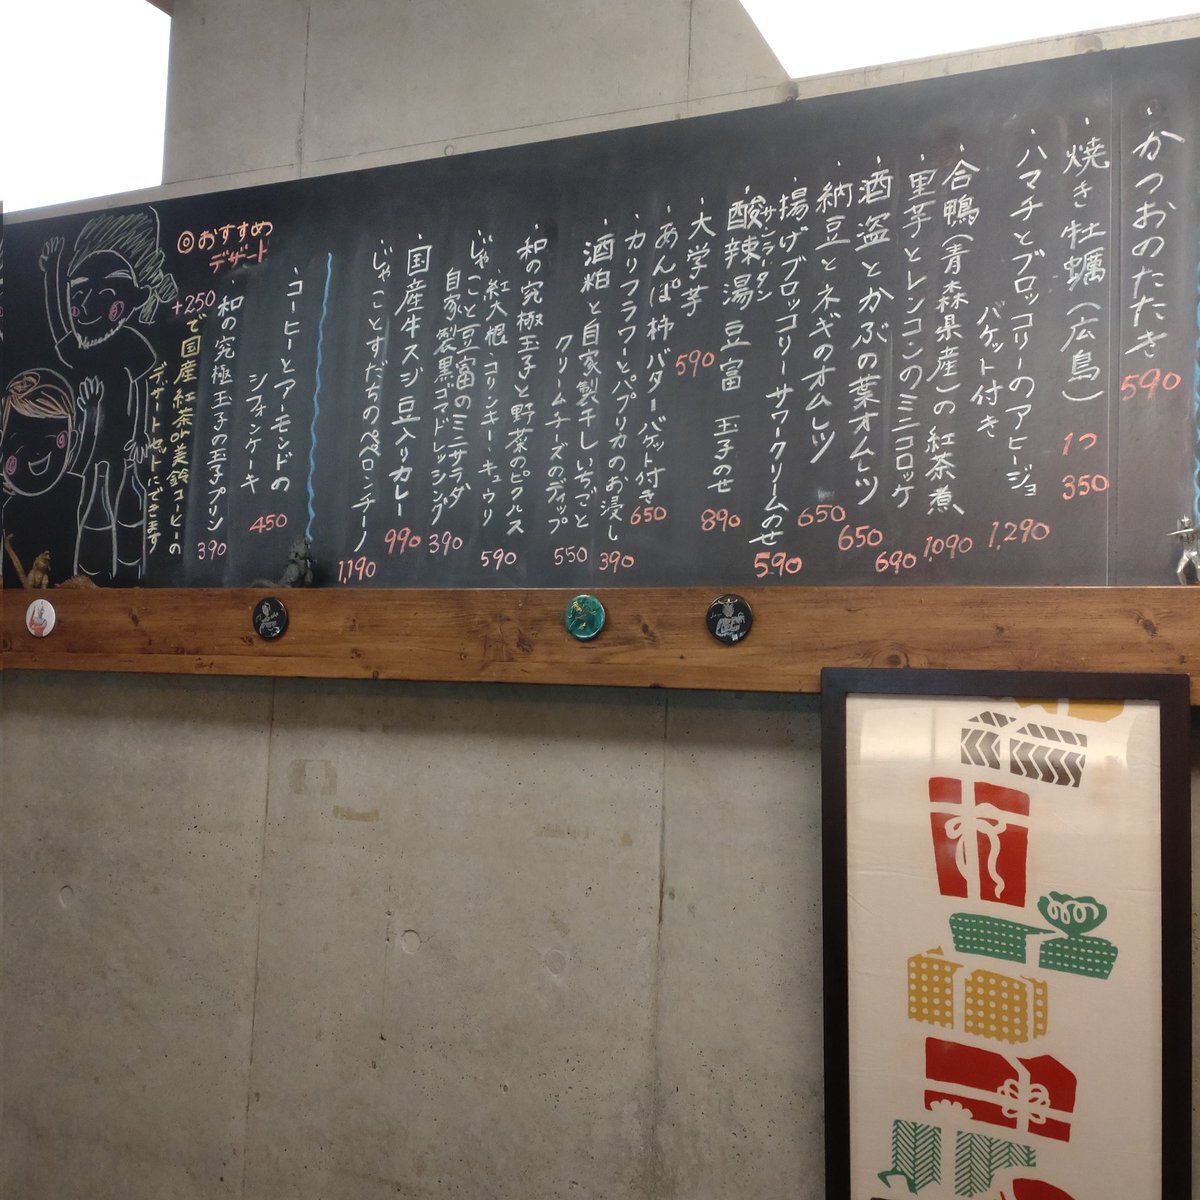 ・かつおのたたき 590
・焼き牡蠣(広島) 1つ 350
・ハマチとブロッコリーのアヒージョ
バゲット付き 1,290
・合鴨(青森県産)の紅茶煮 1,090
・里芋とレンコンのミニコロッケ 690
・酒盗とかぶの葉オムレツ 650
・納豆とネギのオムレツ 650
・揚げブロッコリーサワークリームのせ 590
サンラータン
・酸辣湯豆富 玉子のせ 890
・大学芋 590
・あんぽ柿バターバゲット付き 650
・カリフラワーとパプリカのお浸し 390
・酒粕と自家製干しいちごと
クリームチーズのディップ 550
・和の究極玉子と野菜のピクルス
紅大根・コリンキー・キュウリ 590
・じゃこと豆富のミニサラダ
自家製黒ゴマドレッシング 390
・国産牛スジ豆入りカレー 990
・じゃことすだちのペペロンチーノ 1,190
◎おすすめ
デザート
・コーヒーとアーモンドの
シフォンケーキ 450
・和の究極玉子の玉子プリン 390
+250で国産紅茶or美鈴コーヒーの
デザートセットにできます